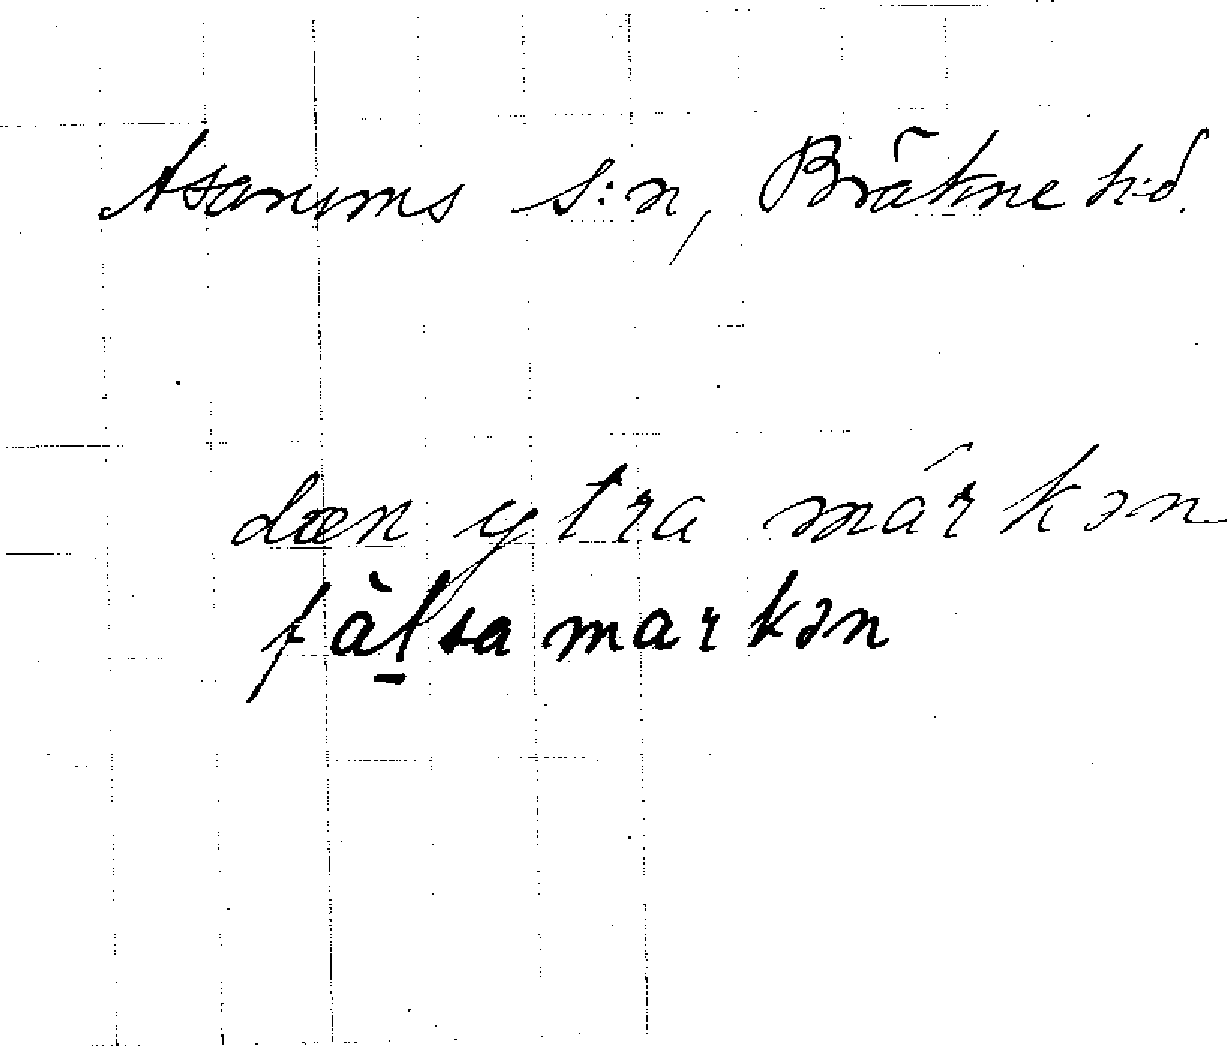 Asarums s:n, Bräkne h:d.
dæn ytra márkən
fàḻsamarkən